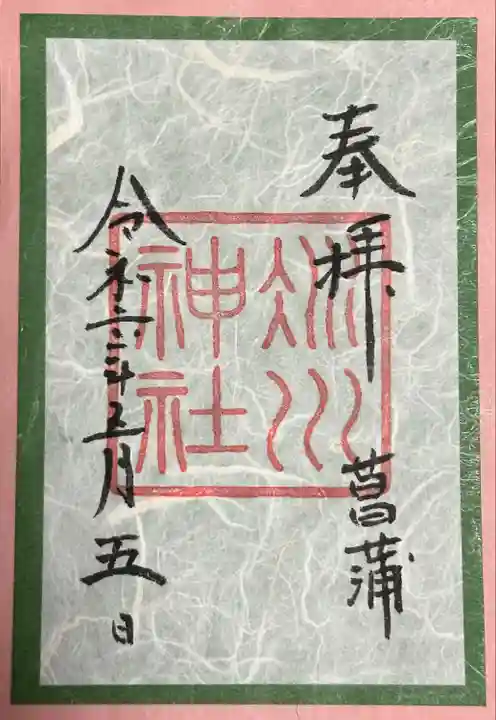 奉拝
菖蒲
氷川
神社
令和六年五月五日